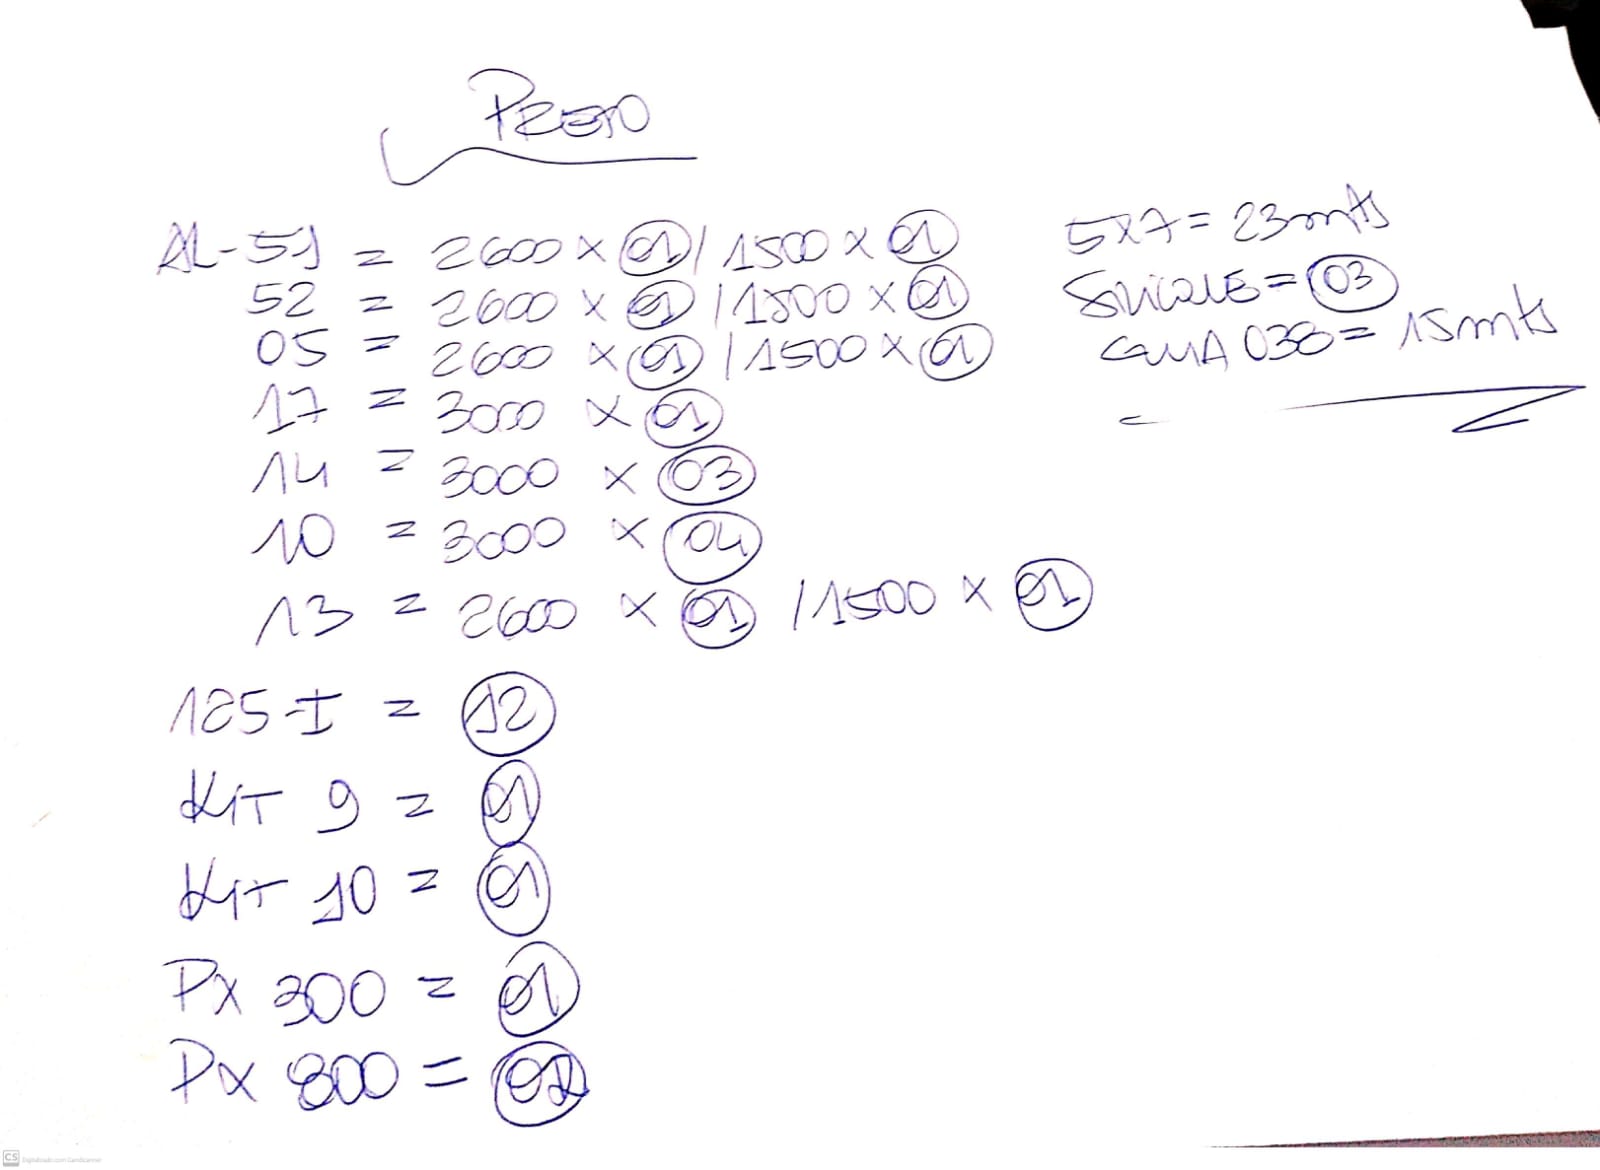 PRETO
AL-51 = 2600 x 01 / 1500 x 01
52 = 2600 x 01 / 1500 x 01
05 = 2600 x 01 / 1500 x 01
17 = 3000 x 01
14 = 3000 x 03
10 = 3000 x 04
13 = 2600 x 01 / 1500 x 01
125-I = 12
KIT 9 = 01
KIT 10 = 01
PX 300 = 01
PX 800 = 02
5x7 = 23mts
= 03
038 = 15mts
CS Digitalizado com CamScanner